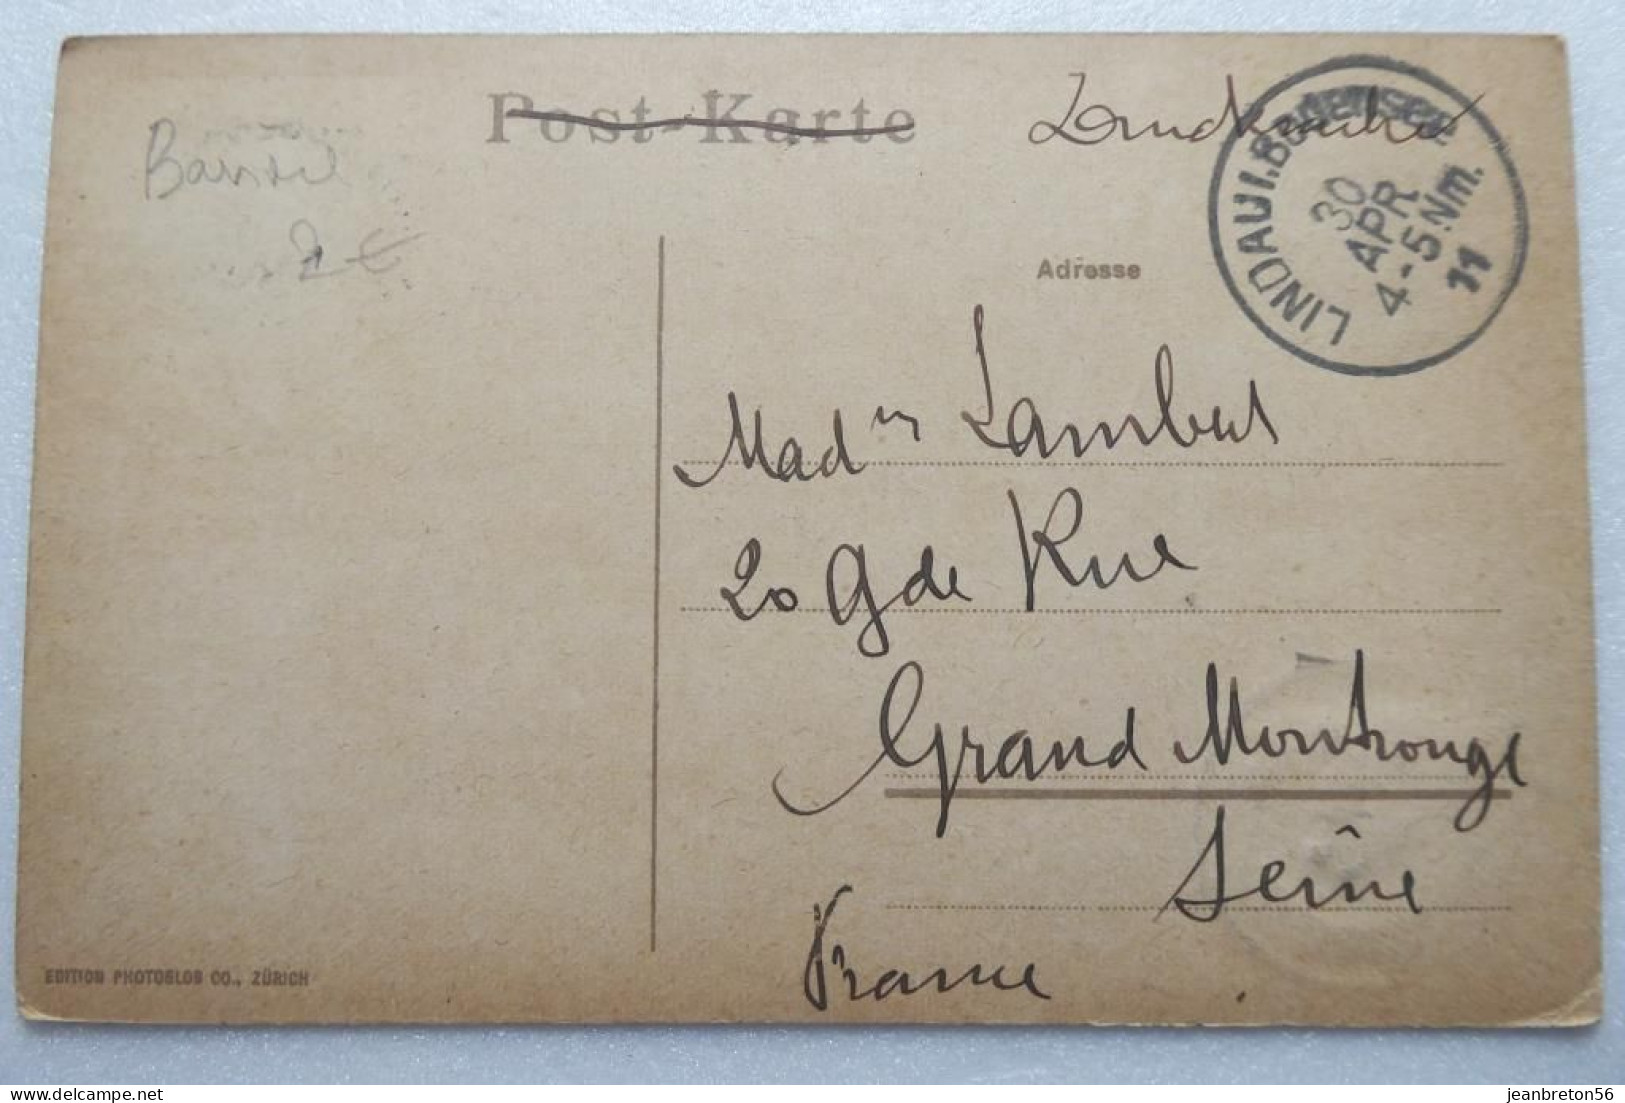 Post-Karte
Drucksache
LINDAU i. Bodensee
30
APR
4-5 Nm.
11
2 €
Adresse
Mad^m Lambert
20 Gde Rue
Grand Montrouge
Seine
France
EDITION PHOTOGLOB CO., ZÜRICH
jeanbreton56